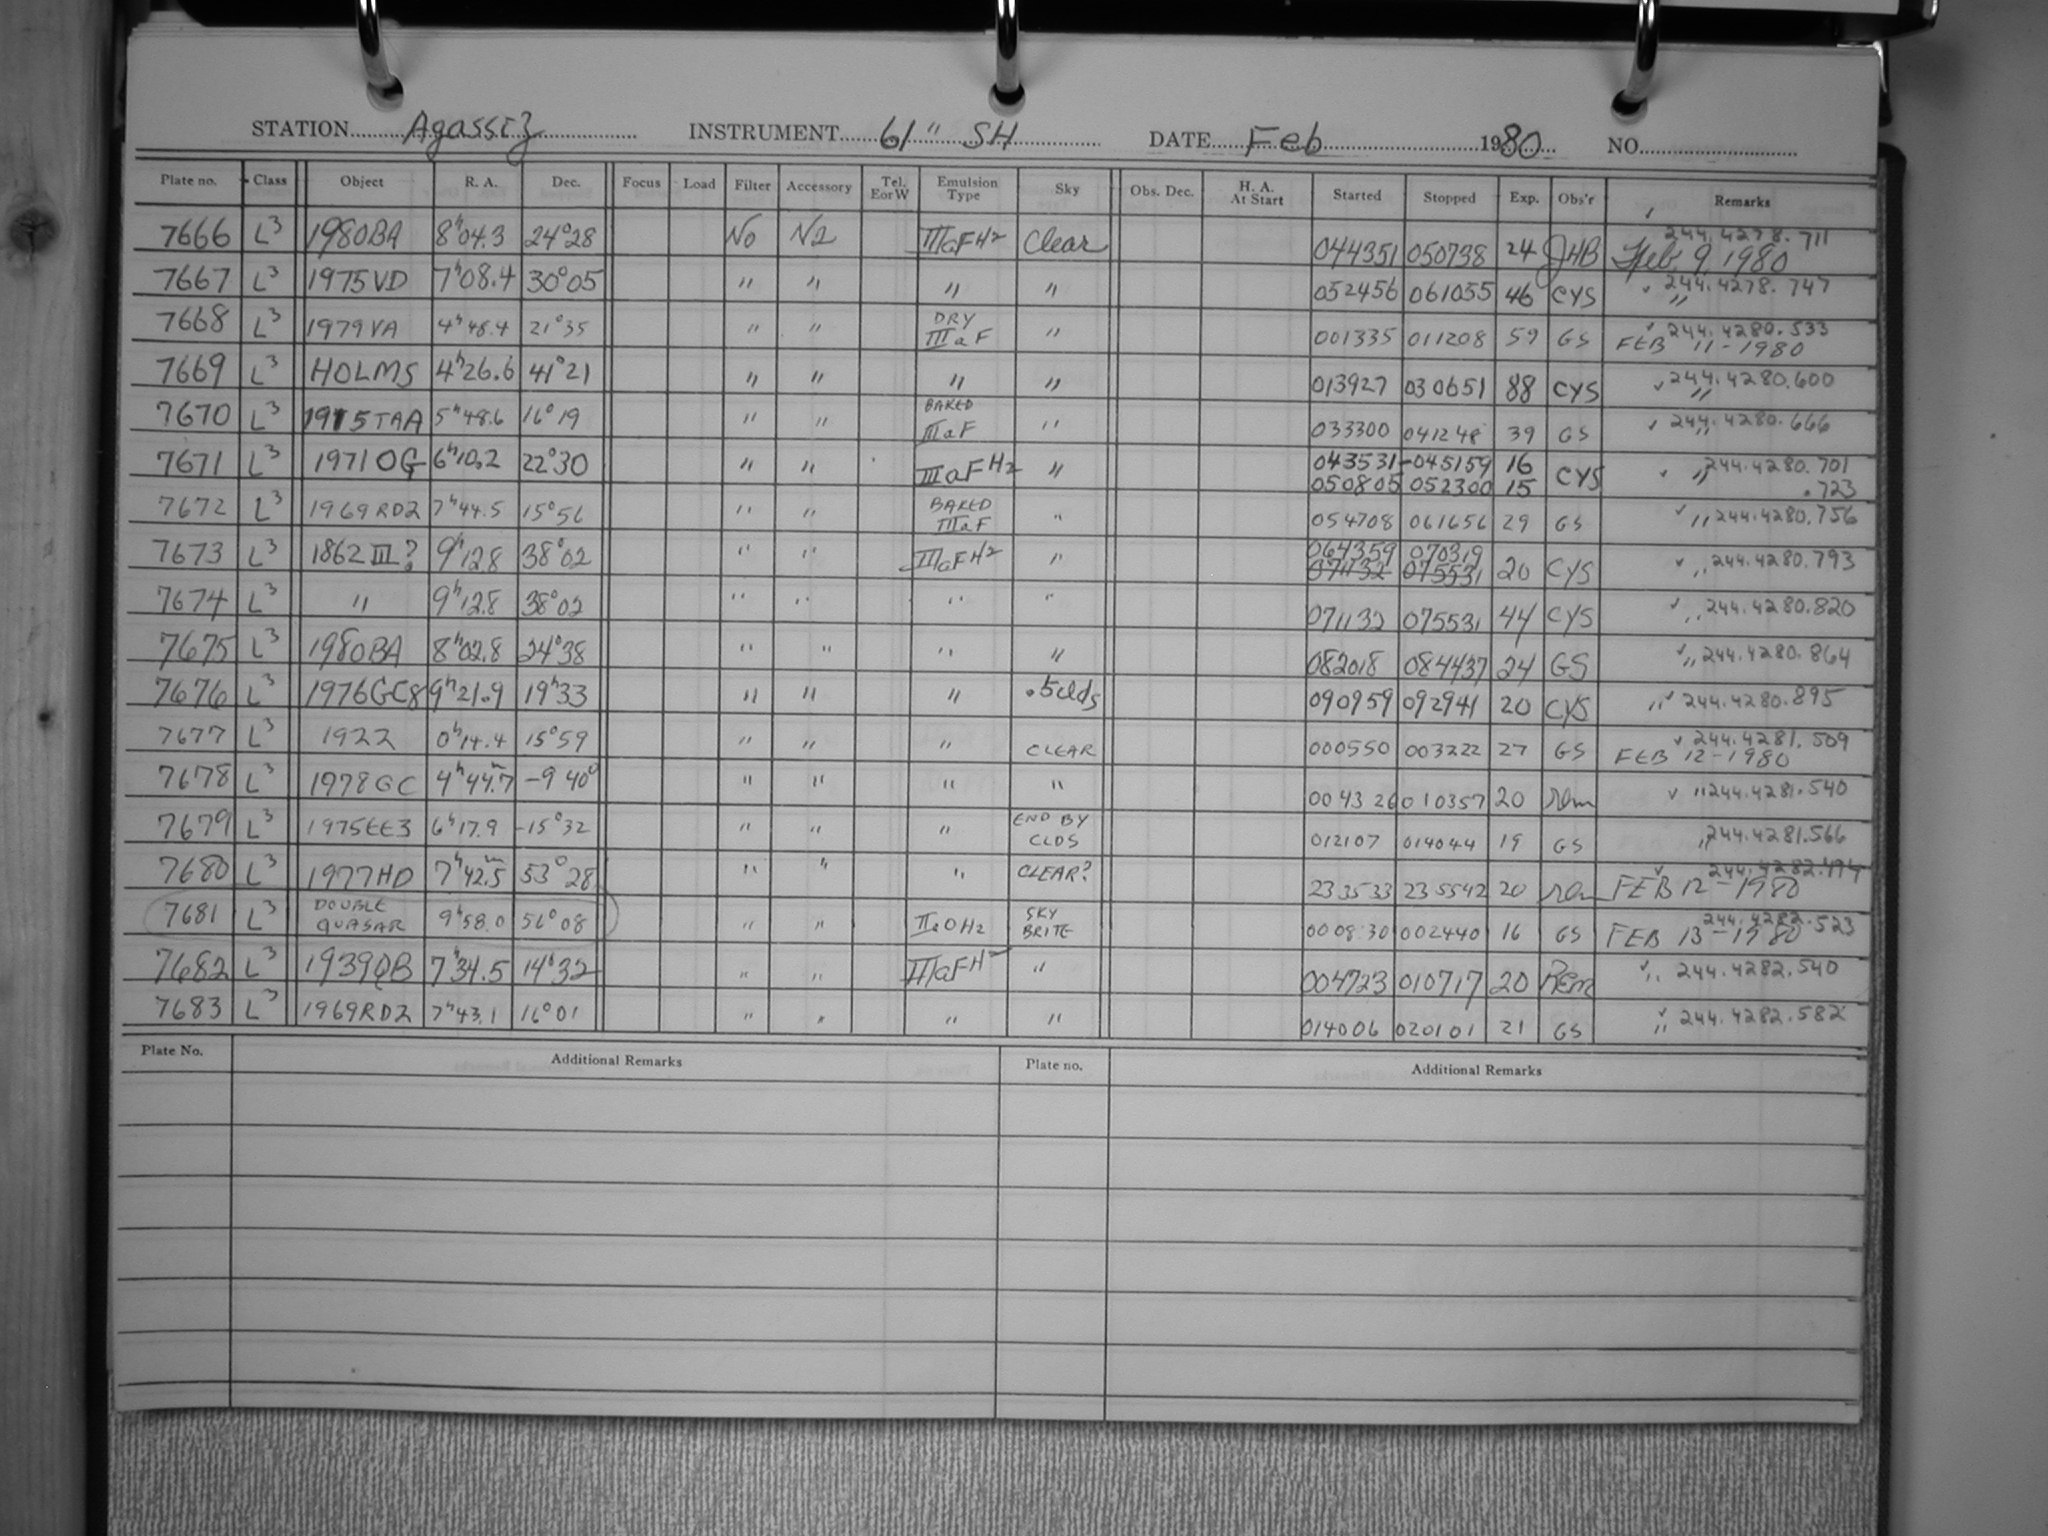 STATION Agassiz INSTRUMENT 61" SH DATE Feb 1980 NO.
Plate no. Class Object R. A. Dec. Focus Load Filter Accessory Tel. EorW Emulsion Type Sky Obs. Dec. H. A. At Start Started Stopped Exp. Obs'r Remarks
7666 L3 1980BA 8h04.3 24°28 No N2 IIIaFH2 Clear 044351 050738 24 JHB 244.4278.711 Feb. 9, 1980
7667 L3 1975VD 7h08.4 30°05 " " " " 052456 061055 46 CYS " 244.4278.747
7668 L3 1979VA 4h48.4 21°35 " " DRY IIIaF " 001335 011208 59 GS 244.4280.533 FEB 11-1980
7669 L3 HOLMS 4h26.6 41°21 " " " " 013927 030651 88 CYS " 244.4280.600
7670 L3 1975TAA 5h48.6 16°19 " " BAKED IIIaF " 033300 041248 39 GS " 244.4280.666
7671 L3 1971OG 6h10.2 22°30 " " IIIaFH2 " 043531-045159 16 CYS " 244.4280.701
050805 052300 15 .723
7672 L3 1969RD2 7h44.5 15°56 " " BAKED IIIaF " 054708 061656 29 GS " 244.4280.756
7673 L3 1862III? 9h12.8 38°02 " " IIIaFH2 " 064359 070319 20 CYS " 244.4280.793
071132 075531
7674 L3 " 9h12.8 38°02 " " " " 071132 075531 44 CYS " 244.4280.820
7675 L3 1980BA 8h02.8 24°38 " " " " 082018 084437 24 GS " 244.4280.864
7676 L3 1976GC8 9h21.9 19h33 " " " .5clds 090959 092941 20 CYS " 244.4280.895
7677 L3 1922 0h14.4 15°59 " " " CLEAR 000550 003222 27 GS 244.4281.509 FEB 12-1980
7678 L3 1978GC 4h44.7m -9 40° " " " " 004326 010357 20 rem " 244.4281.540
7679 L3 1975EE3 6h17.9 -15°32 " " " END BY CLDS 012107 014044 19 GS " 244.4281.566
7680 L3 1977HD 7h42.5m 53°28 " " " CLEAR? 233533 235542 20 rem 244.4282.494 FEB 12-1980
7681 L3 DOUBLE QUASAR 9h58.0 56°08 " " IIaOH2 SKY BRITE 000830 002440 16 GS 244.4282.523 FEB 13-1980
7682 L3 1939QB 7h34.5 14°32 " " IIIaFH2 " 004723 010717 20 Rem " 244.4282.540
7683 L3 1969RD2 7h43.1 16°01 " " " " 014006 020101 21 GS " 244.4282.582
Plate No. Additional Remarks Plate no. Additional Remarks